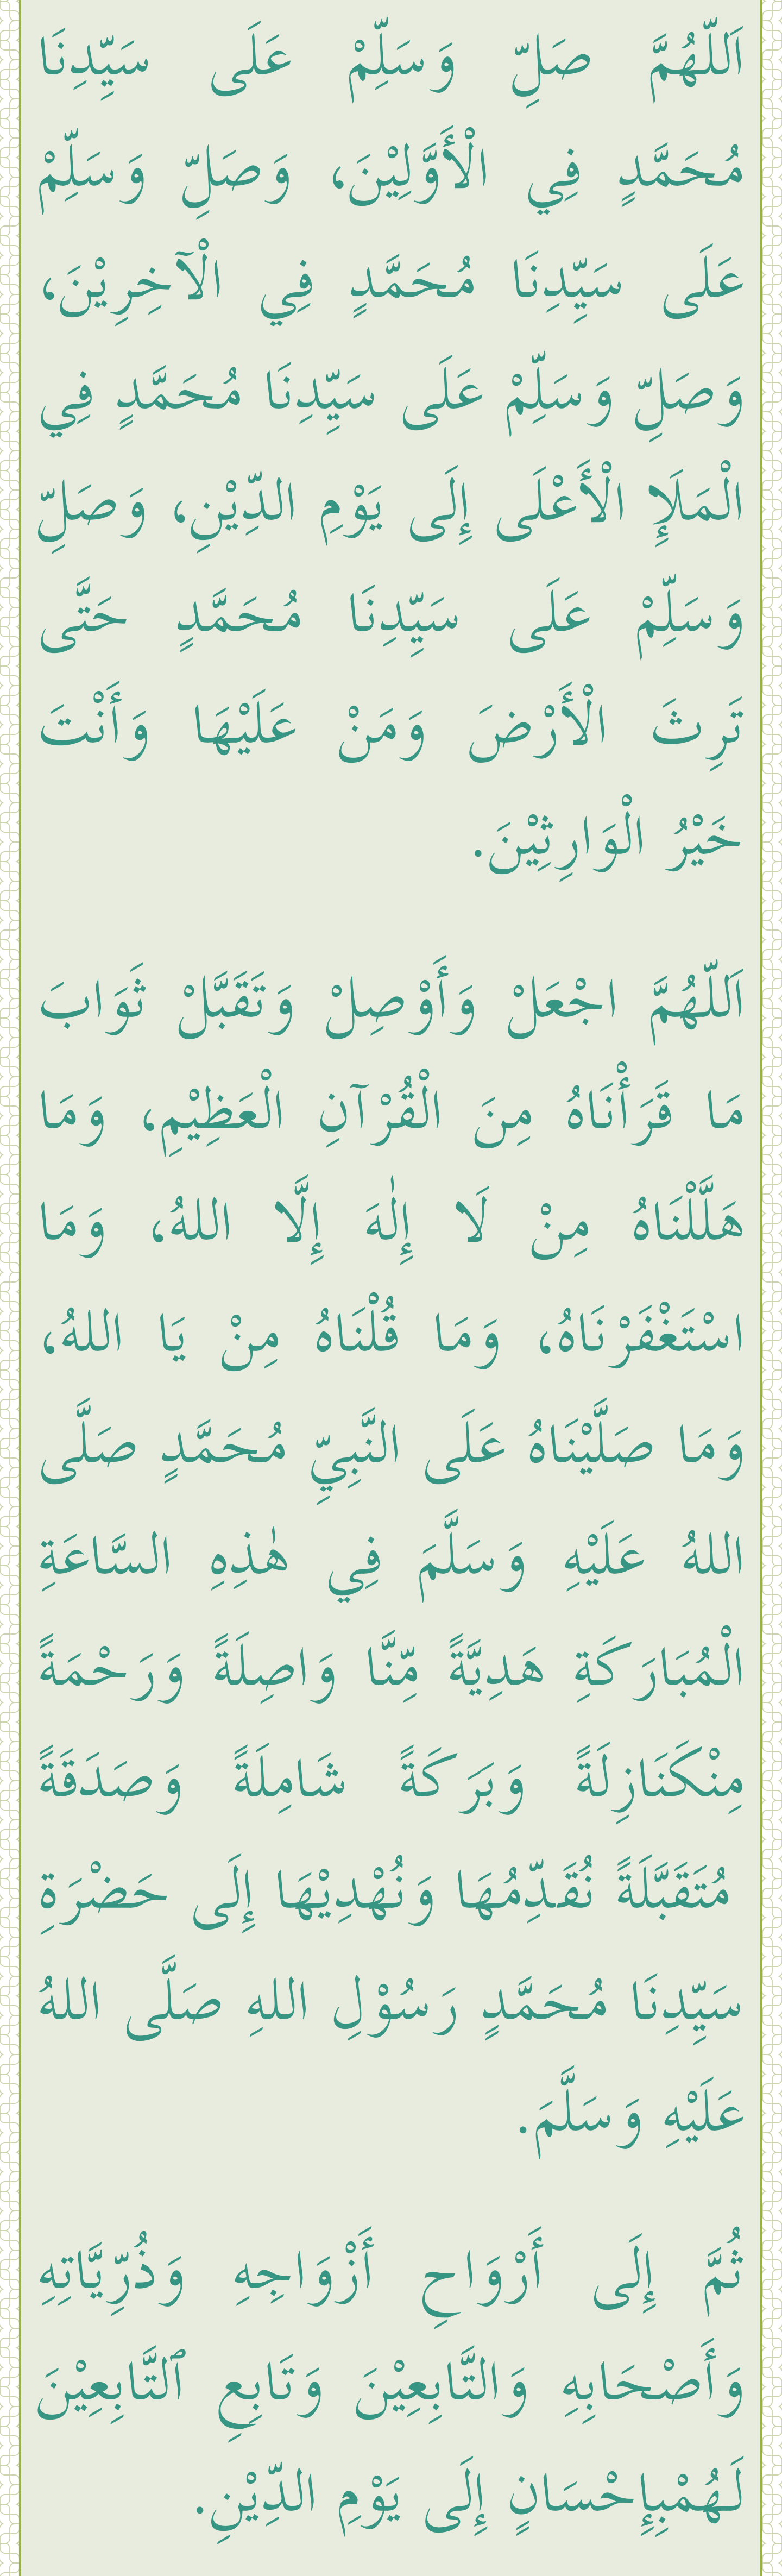 اَللّٰهُمَّ صَلِّ وَسَلِّمْ عَلَى سَيِّدِنَا
مُحَمَّدٍ فِي الْأَوَّلِيْنَ، وَصَلِّ وَسَلِّمْ
عَلَى سَيِّدِنَا مُحَمَّدٍ فِي الْآخِرِيْنَ،
وَصَلِّ وَسَلِّمْ عَلَى سَيِّدِنَا مُحَمَّدٍ فِي
الْمَلَإِ الْأَعْلَى إِلَى يَوْمِ الدِّيْنِ، وَصَلِّ
وَسَلِّمْ عَلَى سَيِّدِنَا مُحَمَّدٍ حَتَّى
تَرِثَ الْأَرْضَ وَمَنْ عَلَيْهَا وَأَنْتَ
خَيْرُ الْوَارِثِيْنَ.
اَللّٰهُمَّ اجْعَلْ وَأَوْصِلْ وَتَقَبَّلْ ثَوَابَ
مَا قَرَأْنَاهُ مِنَ الْقُرْآنِ الْعَظِيْمِ، وَمَا
هَلَّلْنَاهُ مِنْ لَا إِلٰهَ إِلَّا اللهُ، وَمَا
اسْتَغْفَرْنَاهُ، وَمَا قُلْنَاهُ مِنْ يَا اللهُ،
وَمَا صَلَّيْنَاهُ عَلَى النَّبِيِّ مُحَمَّدٍ صَلَّى
اللهُ عَلَيْهِ وَسَلَّمَ فِي هٰذِهِ السَّاعَةِ
الْمُبَارَكَةِ هَدِيَّةً مِّنَّا وَاصِلَةً وَرَحْمَةً
مِنْكَنَازِلَةً وَبَرَكَةً شَامِلَةً وَصَدَقَةً
مُتَقَبَّلَةً نُقَدِّمُهَا وَنُهْدِيْهَا إِلَى حَضْرَةِ
سَيِّدِنَا مُحَمَّدٍ رَسُوْلِ اللهِ صَلَّى اللهُ
عَلَيْهِ وَسَلَّمَ.
ثُمَّ إِلَى أَرْوَاحِ أَزْوَاجِهِ وَذُرِّيَّاتِهِ
وَأَصْحَابِهِ وَالتَّابِعِيْنَ وَتَابِعِ ٱلتَّابِعِيْنَ
لَهُمْبِإِحْسَانٍ إِلَى يَوْمِ الدِّيْنِ.